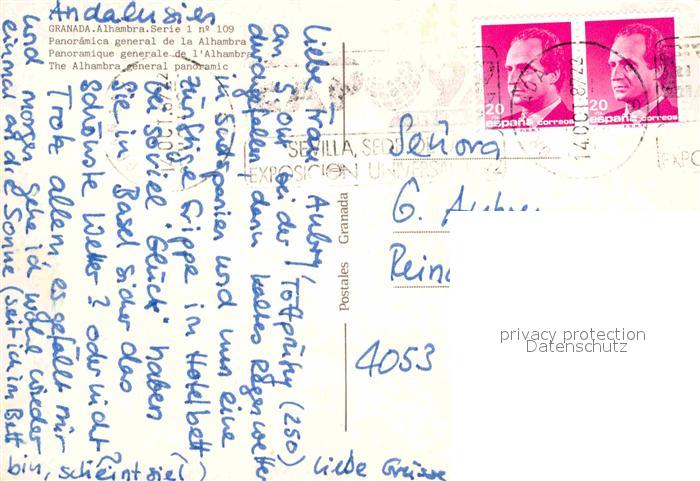 GRANADA.Alhambra.Serie 1 nº 109
Panorámica general de la Alhambra
Panoramique generale de l'Alhambra
The Alhambra general panoramic
Andalusien
Liebe Frau Aubry,
am 5. mit bei der Töffprüfig (250)
durchgefallen, dann kaltes Regenwetter
in Südspanien und nun eine
zünftige Grippe im Hotelbett
bei soviel "Glück" haben
Sie in Basel sicher das
schönste Wetter? oder nicht?
Trotz allem, es gefällt mir
und morgen gehe ich wohl wieder
einmal an die Sonne (seit ich im Bett
bin, scheint sie!)
Liebe Grüsse
Postales Granada
20 PTA
españa correos
20 PTA
españa correos
14 OCT 87-22
14 OCT 87-22
SEVILLA, SEDE
EXPOSICION UNIVERSAL 92
EXPO
Señora
G. Aubry
4053
privacy protection
Datenschutz